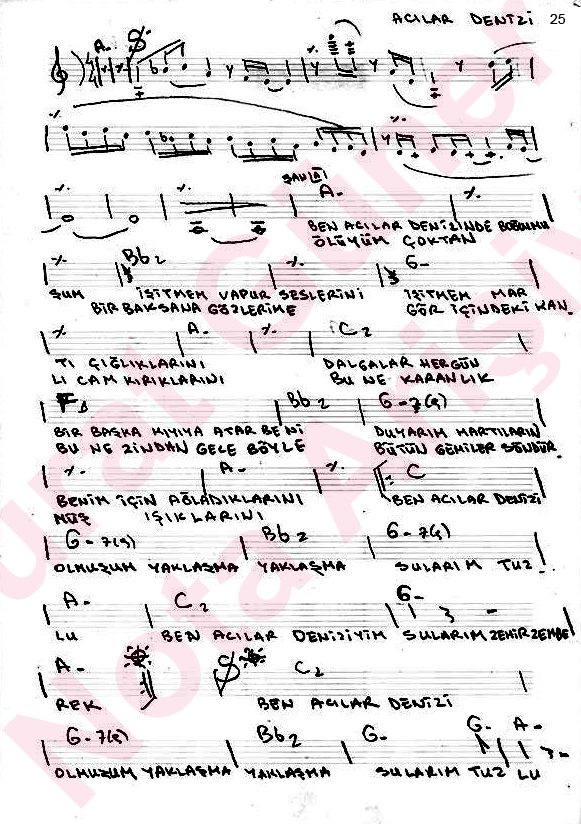 ACILAR DENİZİ 25
A-
ŞANLAİ
A-
BEN ACILAR DENİZİNDE BOĞULMU
ÖLÜYÜM ÇOKTAN
Bb2 G-
ŞUM İŞİTMEM VAPUR SESLERİNİ İŞİTMEM MAR
BİR BAKSANA GÖZLERİME GÖR İÇİNDEKİ KAN
A- C2
TI ÇIĞLIKLARINI DALGALAR HERGÜN
LI CAM KIRIKLARINI BU NE KARANLIK
Bb2 G-7(9)
BİR BAŞKA KIYIYA ATAR BENİ DUYARIM MARTILARIN
BU NE ZİNDAN GECE BÖYLE BÜTÜN GEMİLER SÖNDÜR
A- C
BENİM İÇİN AĞLADIKLARINI BEN ACILAR DENİZİ
MÜŞ IŞIKLARINI
G-7(9) Bb2 G-7(9)
OLMUŞUM YAKLAŞMA YAKLAŞMA SULARIM TUZ
A- C2 G-
LU BEN ACILAR DENİZİYİM SULARIM ZEHİR ZEMBE
A- C2
REK BEN ACILAR DENİZİ
G-7(9) Bb2 G- G- A-
OLMUŞUM YAKLAŞMA YAKLAŞMA SULARIM TUZ LU
Murat Güner
Nota Arşivi